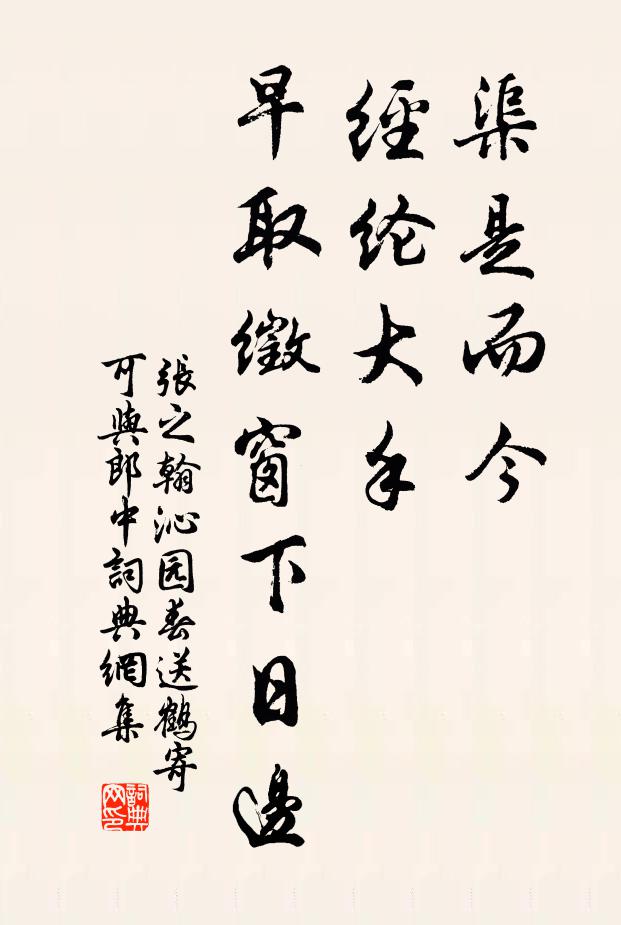 渠是而今
经纶大手
早取徵窗下日邊
張之翰沁园春送鶴寄
可與郎中詞典網集
詞典网印